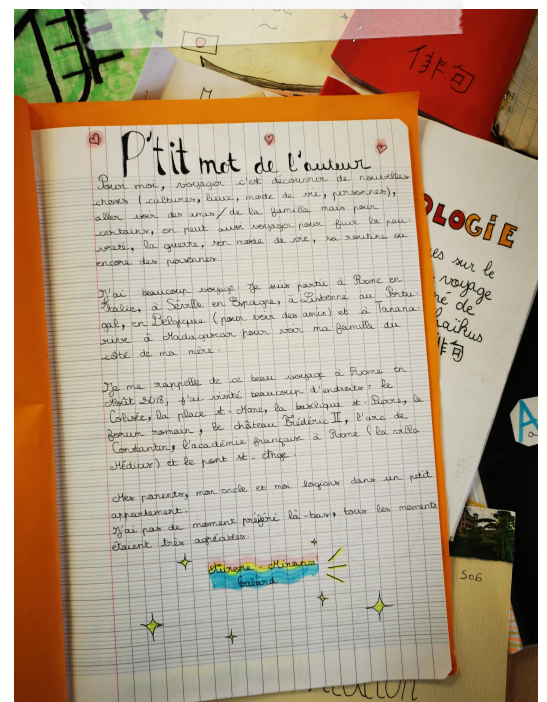 俳句
P'tit mot de l'auteur
Pour moi, voyager c'est découvrir de nouvelles
choses (cultures, lieux, mode de vie, personnes),
aller voir des amis/de la famille mais pour
certains, on peut aussi voyager pour fuir la pau-
vreté, la guerre, son mode de vie, sa routine ou
encore des personnes.
J'ai beaucoup voyagé. Je suis partie à Rome en
Italie, à Séville en Espagne, à Lisbonne au Portu-
gal, en Belgique (pour voir des amis) et à Tanana-
rive à Madagascar pour voir ma famille du
côté de ma mère.
Je me rappelle de ce beau voyage à Rome en
Août 2018, j'ai visité beaucoup d'endroits : le
Colisée, la place st-Marc, la basilique st-Pierre, le
forum romain, le château Frédéric II, l'arc de
Constantin, l'académie française à Rome (la villa
Médicis) et le pont st-Ange.
Mes parents, mon oncle et moi logions dans un petit
appartement.
J'ai pas de moment préféré là-bas, tous les moments
étaient très agréables.
Aurore Mirana
OLOGIE
es sur le
voyage
ré de
haikus
俳句
A
506